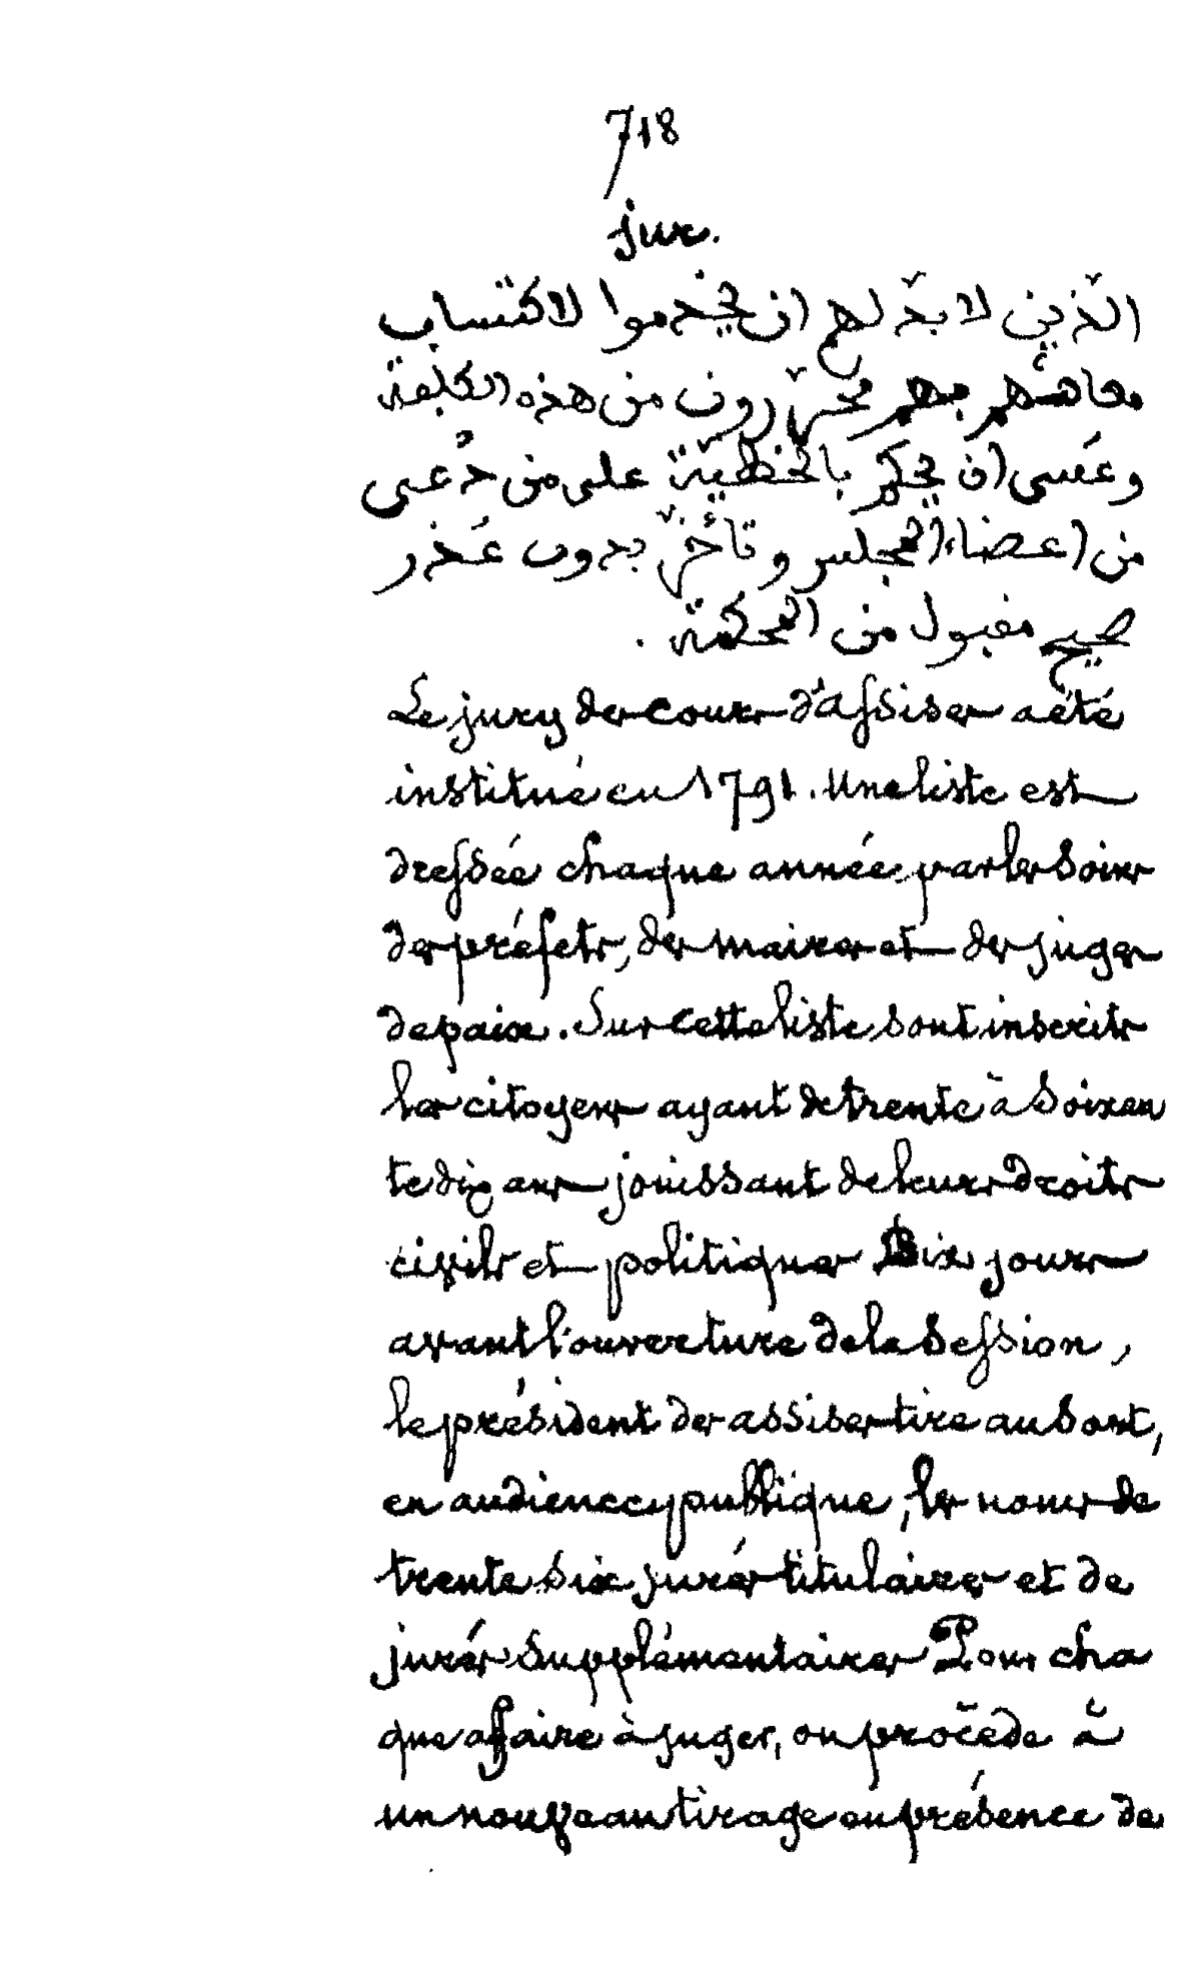 718
jur.
الّذين لا بدّ لهم ان يخدموا لاكتساب
معاشهم فهم محرّرون من هذه الكلفة
وعَسى ان يحكم بالخطيّة على من دُعى
من اعضاء المجلس وتأخّر بدون عَذر
صحيح مقبول من المحكمة .
Le jury des cours d'assises a été
institué en 1791. Une liste est
dressée chaque année, par les soins
des préfets, des maires et des juges
de paix. Sur cette liste sont inscrits
les citoyens ayant de trente à soixan
te dix ans jouissant de leurs droits
civils et politiques Dix jours
avant l'ouverture de la session,
le président des assises tire au sort,
en audience publique, les noms de
trente six jurés titulaires et de
jurés supplémentaires Pour cha
que affaire à juger, on procède à
un nouveau tirage en présence de